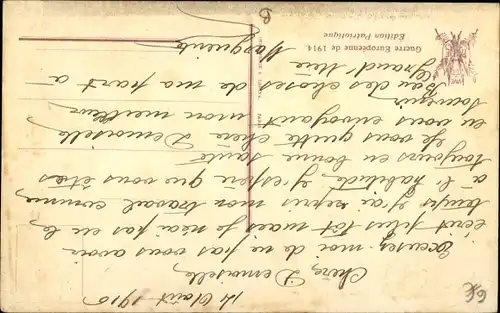 Guerre Européenne de 1914
Edition Patriotique
14 Août 1915
Chère Demoiselle,
Excusez-moi de ne pas vous avoir
écrit plus tôt mais je n'ai pas eu le
temps j'ai repris mon travail comme
à l'habitude j'espère que vous êtes
toujours en bonne santé
Je vous quitte chère Demoiselle
en vous envoyant mon meilleur
souvenir
Bien des choses de ma part à
Grand' Mère
Marguerite
B